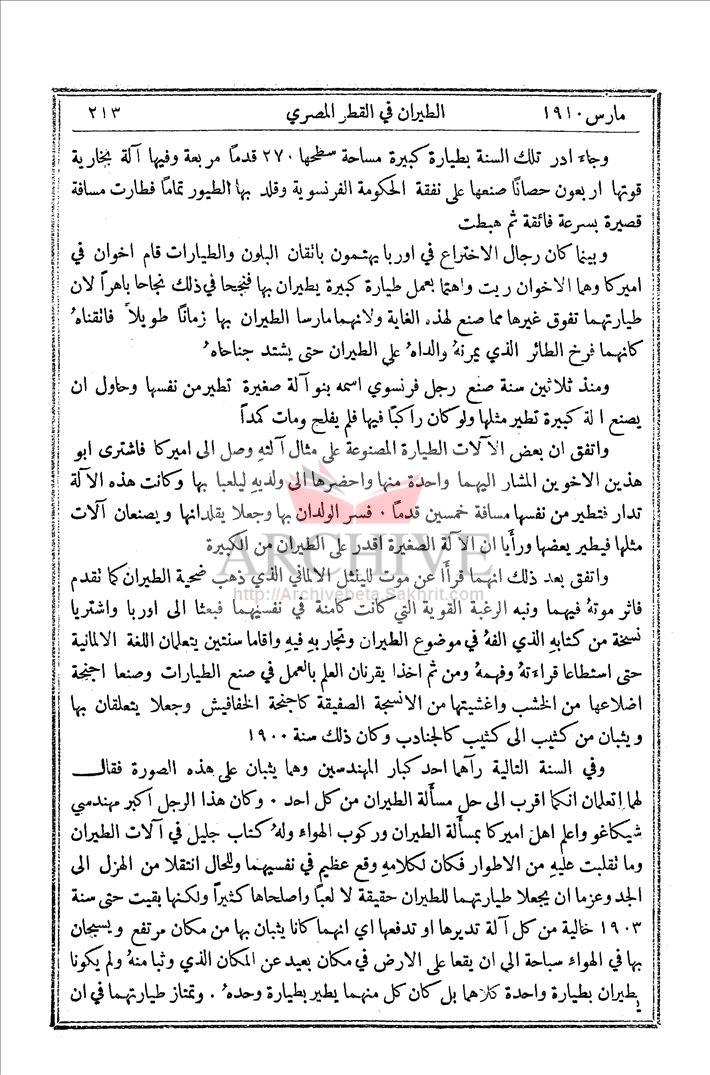 مارس ١٩١٠ الطيران في القطر المصري ٢١٣
وجاء ادر تلك السنة بطيارة كبيرة مساحة سطحها ٢٧٠ قدماً مربعة وفيها آلة بخارية
قوتها اربعون حصاناً صنعها على نفقة الحكومة الفرنسوية وقلد بها الطيور تماماً فطارت مسافة
قصيرة بسرعة فائقة ثم هبطت
وبينما كان رجال الاختراع في اوربا يهتمون باتقان البلون والطيارات قام اخوان في
اميركا وهما الاخوان ريت واهتما بعمل طيارة كبيرة يطيران بها فنجحا في ذلك نجاحا باهراً لان
طيارتهما تفوق غيرها مما صنع لهذه الغاية ولانهما مارسا الطيران بها زماناً طويلاً فاتقناهُ
كانهما فرخ الطائر الذي يمرنهُ والداه على الطيران حتى يشتد جناحاهُ
ومنذ ثلاثين سنة صنع رجل فرنسوي اسمه بنو آلة صغيرة تطير من نفسها وحاول ان
يصنع الة كبيرة تطير مثلها ولو كان راكباً فيها فلم يفلح ومات كمداً
واتفق ان بعض الآلات الطيارة المصنوعة على مثال آلتهِ وصل الى اميركا فاشترى ابو
هذين الاخوين المشار اليهما واحدة منها واحضرها الى ولديهِ ليلعبا بها وكانت هذه الآلة
تدار فتطير من نفسها مسافة خمسين قدماً ٠ فسر الولدان بها وجعلا يقلدانها ويصنعان آلات
مثلها فيطير بعضها ورأيا ان الآلة الصغيرة اقدر على الطيران من الكبيرة
ARCHIVE
واتفق بعد ذلك انهما قرأا عن موت للينثل الالماني الذي ذهب ضحية الطيران كما تقدم
http://Archivebeta.Sakhrit.com
فاثر موتهُ فيهما ونبه الرغبة القوية التي كانت كامنة في نفسيهما فبعثا الى اوربا واشتريا
نسخة من كتابهِ الذي الفهُ في موضوع الطيران وتجاربهِ فيهِ واقاما سنتين يتعلمان اللغة الالمانية
حتى استطاعا قراءتهُ وفهمهُ ومن ثم اخذا يقرنان العلم بالعمل في صنع الطيارات وصنعا اجنحة
اضلاعها من الخشب واغشيتها من الانسجة الصفيقة كاجنحة الخفافيش وجعلا يتعلقان بها
ويثبان من كثيب الى كثيب كالجنادب وكان ذلك سنة ١٩٠٠
وفي السنة التالية رآهما احد كبار المهندسين وهما يثبان على هذه الصورة فقال
لهما اتعلمان انكما اقرب الى حل مسألة الطيران من كل احد ٠ وكان هذا الرجل اكبر مهندسي
شيكاغو واعلم اهل اميركا بمسألة الطيران وركوب الهواء ولهُ كتاب جليل في آلات الطيران
وما نقلبت عليهِ من الاطوار فكان لكلامهِ وقع عظيم في نفسيهما وللحال انتقلا من الهزل الى
الجد وعزما ان يجعلا طيارتهما للطيران حقيقة لا لعباً واصلحاها كثيراً ولكنها بقيت حتى سنة
١٩٠٣ خالية من كل آلة تديرها او تدفعها اي انهما كانا يثبان بها من مكان مرتفع ويسبحان
بها في الهواء سباحة الى ان يقعا على الارض في مكان بعيد عن المكان الذي وثبا منهُ ولم يكونا
يطيران بطيارة واحدة كلاهما بل كان كل منهما يطير بطيارة وحدهُ . وتمتاز طيارتهما في ان